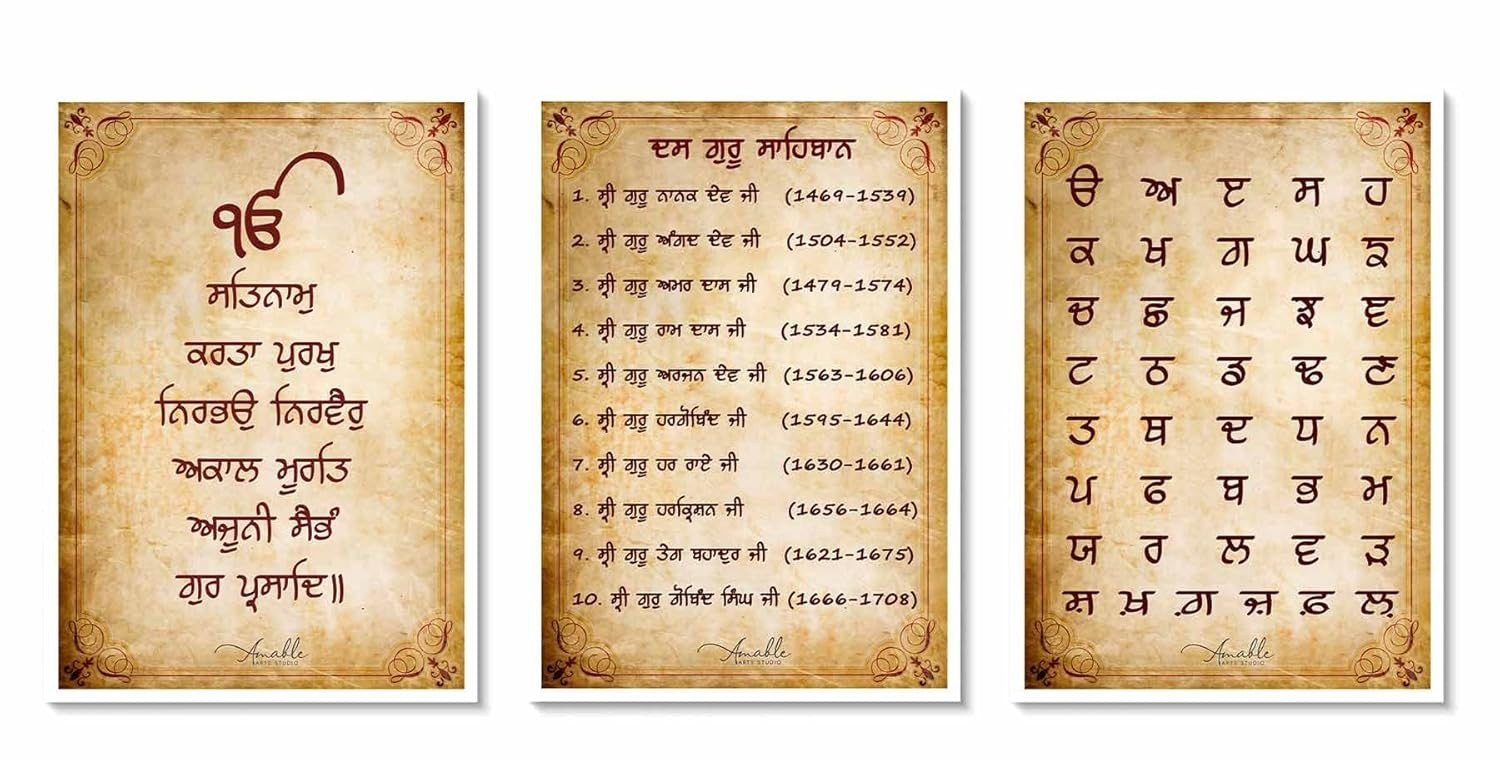 ੴ
ਸਤਿਨਾਮੁ
ਕਰਤਾ ਪੁਰਖੁ
ਨਿਰਭਉ ਨਿਰਵੈਰੁ
ਅਕਾਲ ਮੂਰਤਿ
ਅਜੂਨੀ ਸੈਭੰ
ਗੁਰ ਪ੍ਰਸਾਦਿ॥
Amable
ARTS STUDIO
ਦਸ ਗੁਰੂ ਸਾਹਿਬਾਨ
1. ਸ੍ਰੀ ਗੁਰੂ ਨਾਨਕ ਦੇਵ ਜੀ (1469-1539)
2. ਸ੍ਰੀ ਗੁਰੂ ਅੰਗਦ ਦੇਵ ਜੀ (1504-1552)
3. ਸ੍ਰੀ ਗੁਰੂ ਅਮਰ ਦਾਸ ਜੀ (1479-1574)
4. ਸ੍ਰੀ ਗੁਰੂ ਰਾਮ ਦਾਸ ਜੀ (1534-1581)
5. ਸ੍ਰੀ ਗੁਰੂ ਅਰਜਨ ਦੇਵ ਜੀ (1563-1606)
6. ਸ੍ਰੀ ਗੁਰੂ ਹਰਗੋਬਿੰਦ ਜੀ (1595-1644)
7. ਸ੍ਰੀ ਗੁਰੂ ਹਰ ਰਾਏ ਜੀ (1630-1661)
8. ਸ੍ਰੀ ਗੁਰੂ ਹਰਕ੍ਰਿਸ਼ਨ ਜੀ (1656-1664)
9. ਸ੍ਰੀ ਗੁਰੂ ਤੇਗ ਬਹਾਦੁਰ ਜੀ (1621-1675)
10. ਸ੍ਰੀ ਗੁਰੂ ਗੋਬਿੰਦ ਸਿੰਘ ਜੀ (1666-1708)
Amable
ARTS STUDIO
ੳ ਅ ੲ ਸ ਹ
ਕ ਖ ਗ ਘ ਙ
ਚ ਛ ਜ ਝ ਞ
ਟ ਠ ਡ ਢ ਣ
ਤ ਥ ਦ ਧ ਨ
ਪ ਫ ਬ ਭ ਮ
ਯ ਰ ਲ ਵ ੜ
ਸ਼ ਖ਼ ਗ਼ ਜ਼ ਫ਼ ਲ਼
Amable
ARTS STUDIO